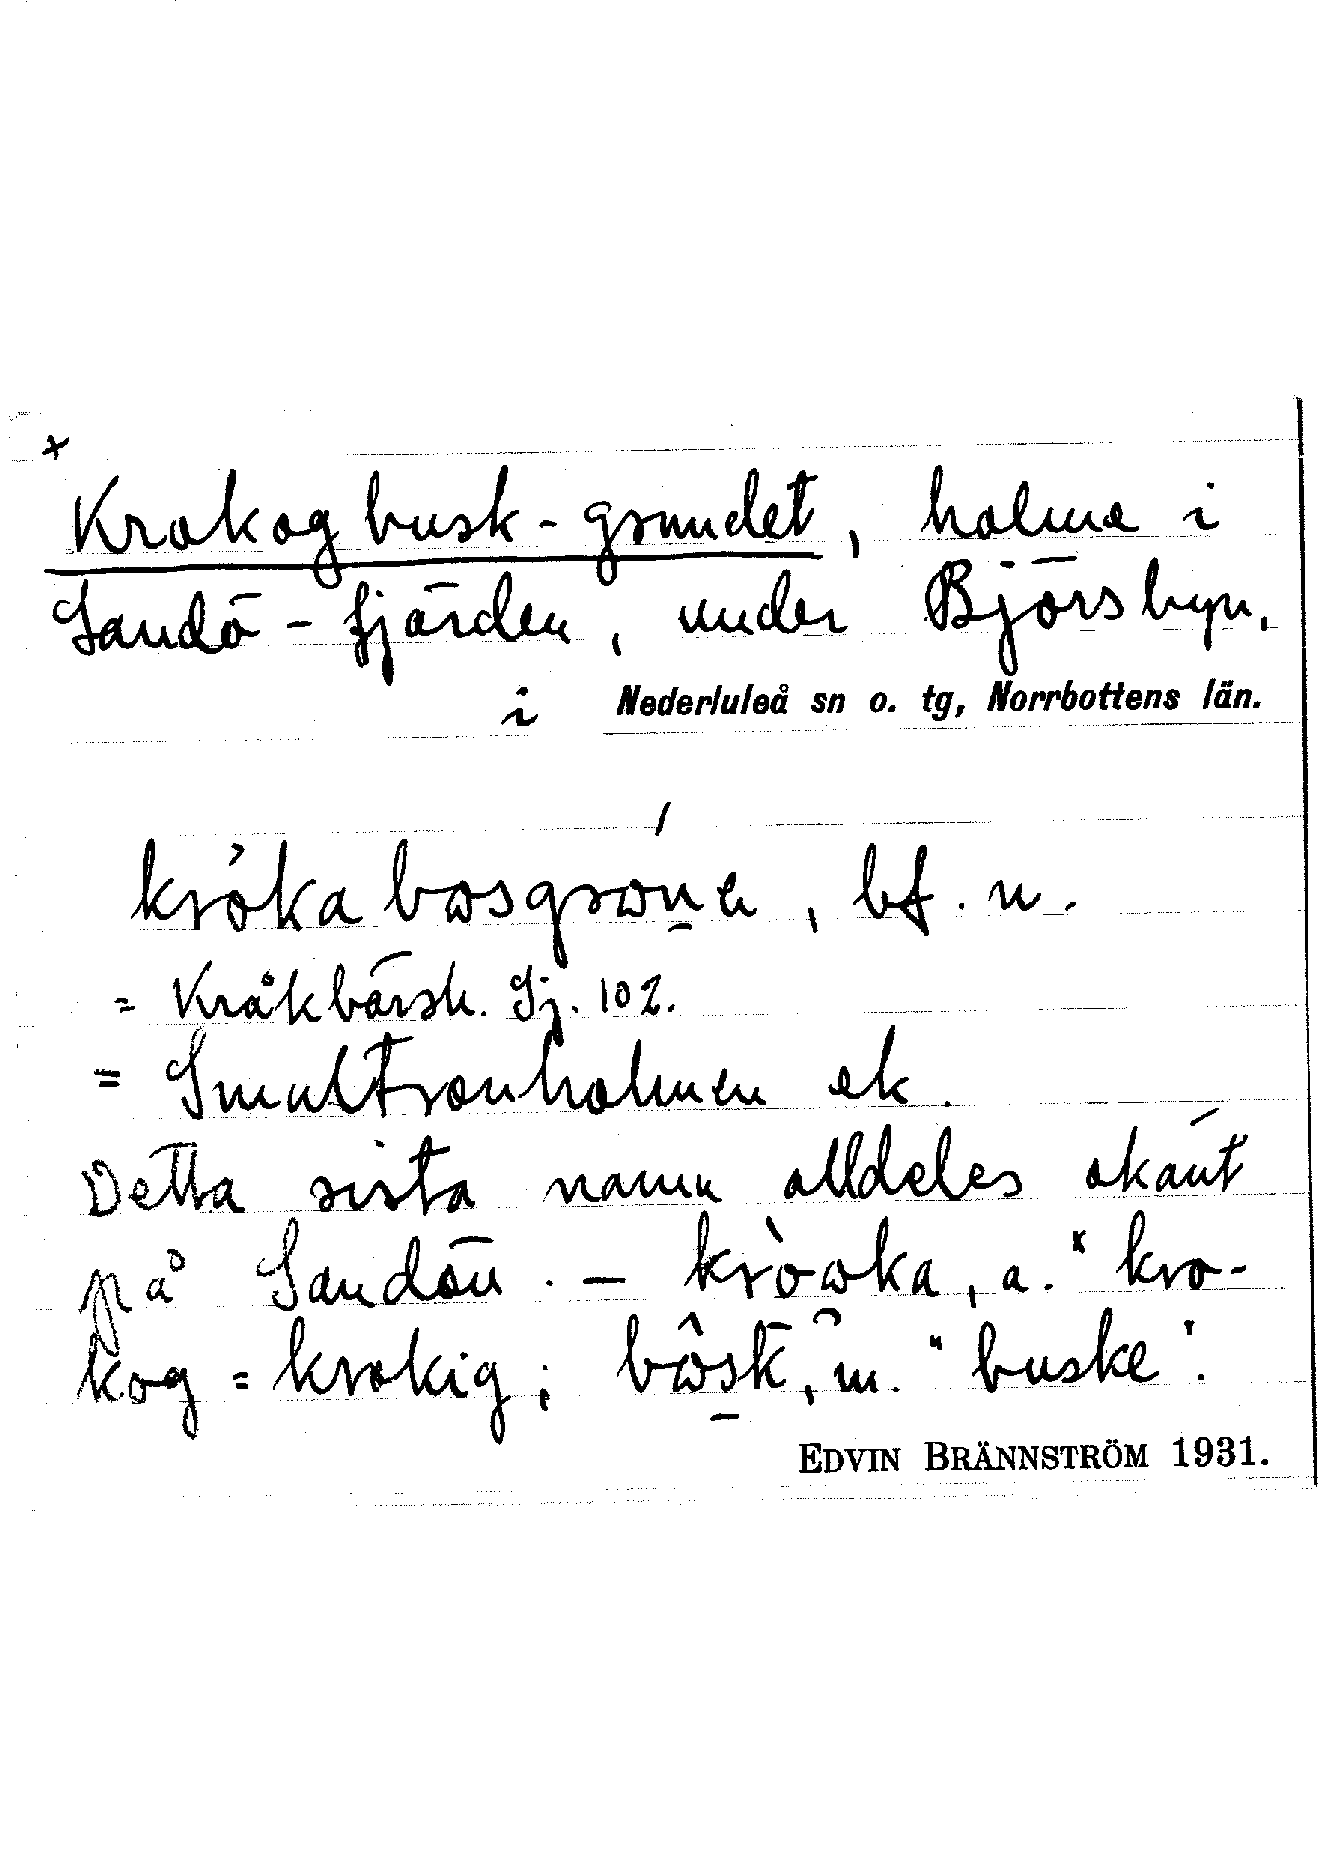 +
Krokogbusk-grundet, holme i
Sandö-fjärden, under Björsbyn.
i Nederluleå sn o. tg, Norrbottens län.
krókabɷsgrɷṉa, bf. n.
= Kråkbärsh. Sj. 102.
= Smultronholmen ek.
Detta sista namn alldeles okänt
på Sandön. – kròɷka, a. "kro-
kog = krokig; bɷ̂sk, m. "buske".
EDVIN BRÄNNSTRÖM 1931.